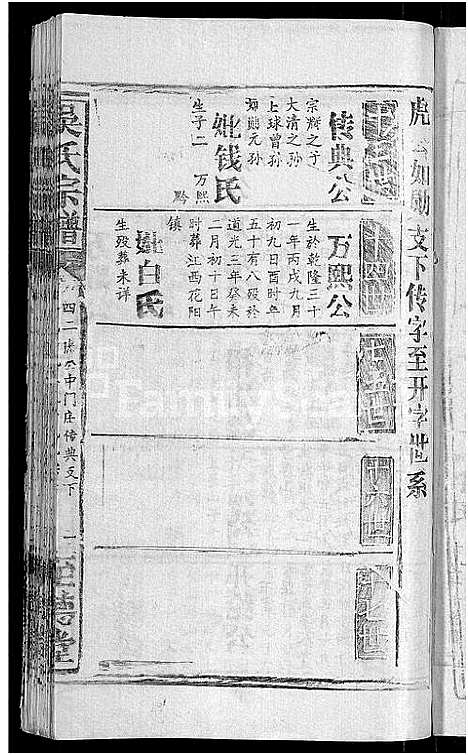 虎一如勋支下传字至开字世系
传典公
宗瀚之子
大清之孙
上球曾孙
如勋元孙
妣钱氏
生子二 万熙
黔
十四世
万熙公
生於乾隆三十
一年丙戌九月
初九日酉时年
五十有八殁於
道光三年癸未
二月初十日午
时葬江西花阳
镇
妣白氏
生殁葬未详
十五世
十六世
十七世
吴氏宗谱
中门庄传典支下
一
至德堂